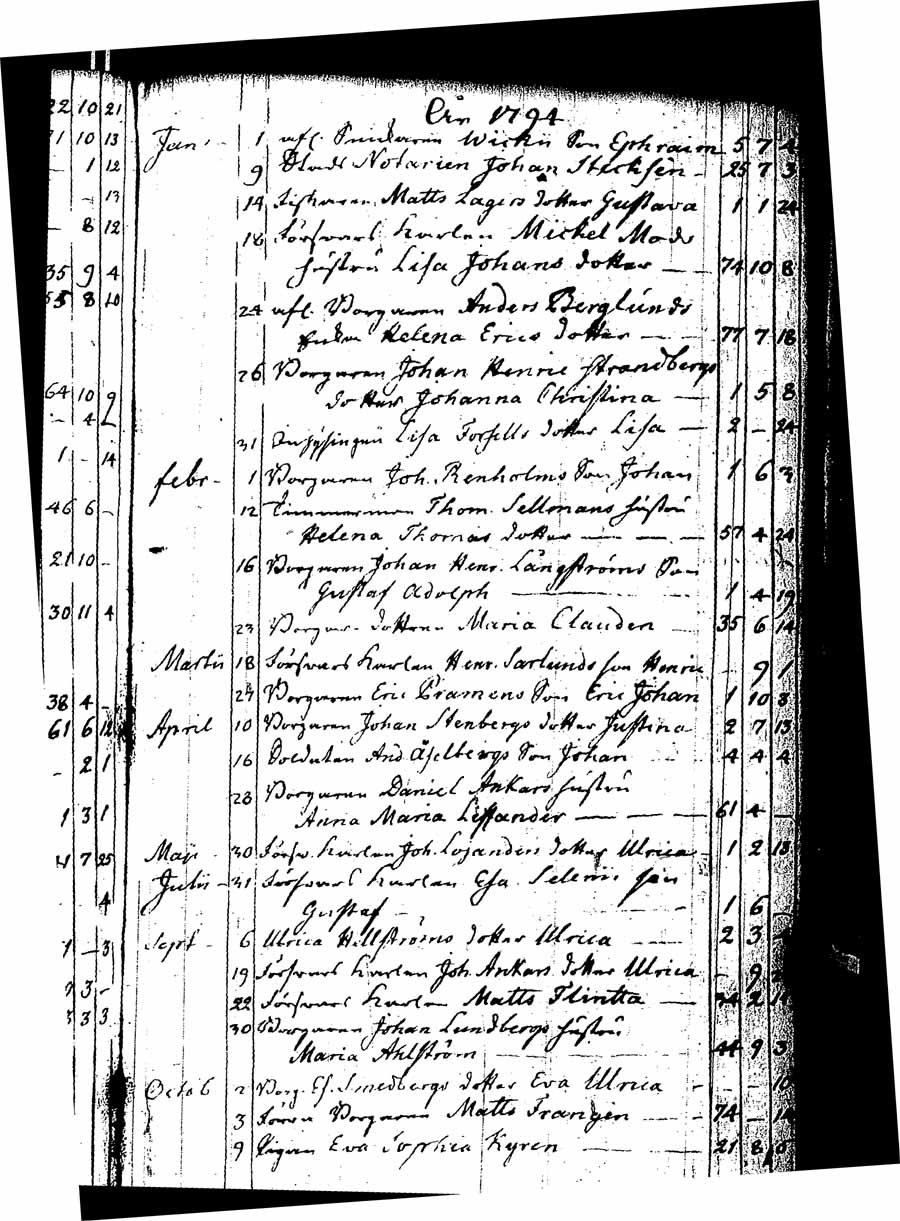 22 10 21
År 1794
71 10 13
Jan. 1 afl. Smedaren Wickii Son Ephraim 5 7 4
- 1 12
9 Stads Notarien Johan Stecksén - 25 7 3
- - 13
14 Fiskaren Matts Lagers dotter Gustava 1 1 24
- 8 12
18 Försvars Karlen Mickel Mods
35 9 4
hustru Lisa Johans dotter — 74 10 8
55 8 10
24 afl. Borgaren Anders Berglunds
Enka Helena Erics dotter — 77 7 18
26 Borgaren Johan Henric Strandbergs
64 10 9
dotter Johanna Christina — 1 5 8
- 4 -
31 Lisa Forsells dotter Lisa — 2 - 24
1 - 14
febr. 1 Borgaren Joh. Renholms Son Johan 1 6 3
46 6 -
12 Timmerman Thom. Sellmans hustru
Helena Thomas dotter — 57 4 24
21 10 -
16 Borgaren Johan Henr. Långströms Son
Gustaf Adolph — 1 4 19
30 11 4
23 Borgare dottren Maria Clauden — 35 6 14
Martii 18 Försvars Karlen Henr. Sarlunds son Henric - 9 1
38 4 -
24 Borgaren Eric Bramens Son Eric Johan 1 10 3
61 6 12
April 10 Borgaren Johan Stenbergs dotter Justina 2 7 13
- 2 1
16 Soldaten And. Äselbergs Son Johan 4 4 4
28 Borgaren Daniel Ankars hustru
1 3 1
Anna Maria Leffander — 61 4 -
7 25
Maji 30 Försv. Karlen Joh. Lojanders dotter Ulrica - 1 2 13
Julii - 31 Försvars Karlen Esa. Selenii son
4
Gustaf - 1 6 -
Sept - 6 Ulrica Hellströms dotter Ulrica — 2 3 -
1 - 3
19 Försvars Karlen Joh. Ankars dotter Ulrica - 9
3 -
22 Försvars Karlen Matts Flintta — 34 2
3 3 3
30 Borgaren Johan Lundbergs hustru
Maria Ahlström — 44 9 3
Octob 2 Borg. Es. Smedbergs dotter Eva Ulrica - - 10
3 Förra Borgaren Matts Frangén — 74 - 14
9 Pigan Eva Sophia Kyren — 21 8